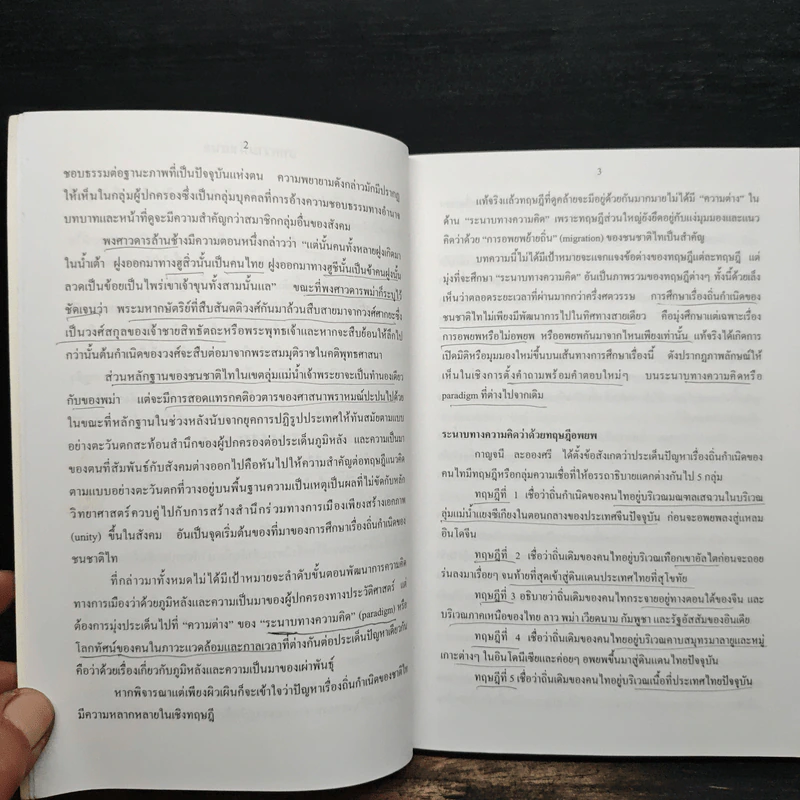 2
ชอบธรรมต่อฐานะภาพที่เป็นปัจจุบันแห่งตน ความพยายามดังกล่าวมักมีปรากฏ
ให้เห็นในกลุ่มผู้ปกครองซึ่งเป็นกลุ่มบุคคลที่การอ้างความชอบธรรมทางอำนาจ
บทบาทและหน้าที่ดูจะมีความสำคัญกว่าสมาชิกกลุ่มอื่นของสังคม
พงศาวดารล้านช้างมีความตอนหนึ่งกล่าวว่า "แต่นั้นคนทั้งหลายฝูงเกิดมา
ในน้ำเต้า ฝูงออกมาทางฮูสิ่วนั้นเป็นคนไทย ฝูงออกมาทางฮูชีนั้นเป็นข้าคนฝูงนั้น
ลวดเป็นข้อยเป็นไพร่เขาเจ้าขุนทั้งสามนั้นแล" ขณะที่พงศาวดารพม่าก็ระบุไว้
ชัดเจนว่า พระมหากษัตริย์ที่สืบสันตติวงศ์กันมาล้วนสืบสายมาจากวงศ์ศากยะซึ่ง
เป็นวงศ์สกุลของเจ้าชายสิทธัตถะหรือพระพุทธเจ้าและหากจะสืบย้อนให้ลึกไป
กว่านั้นต้นกำเนิดของวงศ์จะสืบต่อมาจากพระสมมุติราชในคติพุทธศาสนา
ส่วนหลักฐานของชนชาติไทในเขตลุ่มแม่น้ำเจ้าพระยาจะเป็นทำนองเดียว
กับของพม่า แต่จะมีการสอดแทรกคติอวตารของศาสนาพราหมณ์ปะปนไปด้วย
ในขณะที่หลักฐานในช่วงหลังนับจากยุคการปฏิรูปประเทศให้ทันสมัยตามแบบ
อย่างตะวันตกสะท้อนสำนึกของผู้ปกครองต่อประเด็นภูมิหลัง และความเป็นมา
ของตนที่สัมพันธ์กับสังคมต่างออกไปคือหันไปให้ความสำคัญต่อทฤษฎีแนวคิด
ตามแบบอย่างตะวันตกที่วางอยู่บนพื้นฐานความเป็นเหตุเป็นผลที่ไม่ขัดกับหลัก
วิทยาศาสตร์ควบคู่ไปกับการสร้างสำนึกร่วมทางการเมืองเพียงสร้างเอกภาพ
(unity) ขึ้นในสังคม อันเป็นจุดเริ่มต้นของที่มาของการศึกษาเรื่องถิ่นกำเนิดของ
ชนชาติไท
ที่กล่าวมาทั้งหมดไม่ได้มีเป้าหมายจะลำดับขั้นตอนพัฒนาการความคิด
ทางการเมืองว่าด้วยภูมิหลังและความเป็นมาของผู้ปกครองทางประวัติศาสตร์ แต่
ต้องการมุ่งประเด็นไปที่ "ความต่าง" ของ "ระนาบทางความคิด" (paradigm) หรือ
โลกทัศน์ของคนในภาวะแวดล้อมและกาลเวลาที่ต่างกันต่อประเด็นปัญหาเดียวกัน
คือว่าด้วยเรื่องเกี่ยวกับภูมิหลังและความเป็นมาของเผ่าพันธุ์
หากพิจารณาแต่เพียงผิวเผินก็จะเข้าใจว่าปัญหาเรื่องถิ่นกำเนิดของชาติไท
มีความหลากหลายในเชิงทฤษฎี
3
แท้จริงแล้วทฤษฎีที่ดูคล้ายจะมีอยู่ด้วยกันมากมายไม่ได้มี "ความต่าง" ใน
ด้าน "ระนาบทางความคิด" เพราะทฤษฎีส่วนใหญ่ยังยึดอยู่กับแง่มุมมองและแนว
คิดว่าด้วย "การอพยพย้ายถิ่น" (migration) ของชนชาติไทเป็นสำคัญ
บทความนี้ไม่ได้มีเป้าหมายจะแจกแจงข้อต่างของทฤษฎีแต่ละทฤษฎี แต่
มุ่งที่จะศึกษา "ระนาบทางความคิด" อันเป็นภาพรวมของทฤษฎีต่างๆ ทั้งนี้ด้วยเล็ง
เห็นว่าตลอดระยะเวลาที่ผ่านมากกว่าครึ่งศตวรรษ การศึกษาเรื่องถิ่นกำเนิดของ
ชนชาติไทไม่เพียงมีพัฒนาการไปในทิศทางสายเดียว คือมุ่งศึกษาแต่เฉพาะเรื่อง
การอพยพหรือไม่อพยพ หรืออพยพกันมาจากไหนเพียงเท่านั้น แท้จริงได้เกิดการ
เปิดมิติหรือมุมมองใหม่ขึ้นบนเส้นทางการศึกษาเรื่องนี้ ดังปรากฏภาพลักษณ์ให้
เห็นในเชิงการตั้งคำถามพร้อมคำตอบใหม่ๆ บนระนาบทางความคิดหรือ
paradigm ที่ต่างไปจากเดิม
ระนาบทางความคิดว่าด้วยทฤษฎีอพยพ
กาญจนี ละอองศรี ได้ตั้งข้อสังเกตว่าประเด็นปัญหาเรื่องถิ่นกำเนิดของ
คนไทมีทฤษฎีหรือกลุ่มความเชื่อที่ให้อรรถาธิบายแตกต่างกันไป 5 กลุ่ม
ทฤษฎีที่ 1 เชื่อว่าถิ่นกำเนิดของคนไทยอยู่บริเวณมณฑลเสฉวนในบริเวณ
ลุ่มแม่น้ำแยงซีเกียงในตอนกลางของประเทศจีนปัจจุบัน ก่อนจะอพยพลงสู่แหลม
อินโดจีน
ทฤษฎีที่ 2 เชื่อว่าถิ่นเดิมของคนไทยอยู่บริเวณเทือกเขาอัลไตก่อนจะถอย
ร่นลงมาเรื่อยๆ จนท้ายที่สุดเข้าสู่ดินแดนประเทศไทยที่สุโขทัย
ทฤษฎีที่ 3 อธิบายว่าถิ่นเดิมของคนไทยกระจายอยู่ทางตอนใต้ของจีน และ
บริเวณภาคเหนือของไทย ลาว พม่า เวียดนาม กัมพูชา และรัฐอัสสัมของอินเดีย
ทฤษฎีที่ 4 เชื่อว่าถิ่นเดิมของคนไทยอยู่บริเวณคาบสมุทรมาลายูและหมู่
เกาะต่างๆ ในอินโดนีเซียและค่อยๆ อพยพขึ้นมาสู่ดินแดนไทยปัจจุบัน
ทฤษฎีที่ 5 เชื่อว่าถิ่นเดิมของคนไทยอยู่บริเวณเนื้อที่ประเทศไทยปัจจุบัน